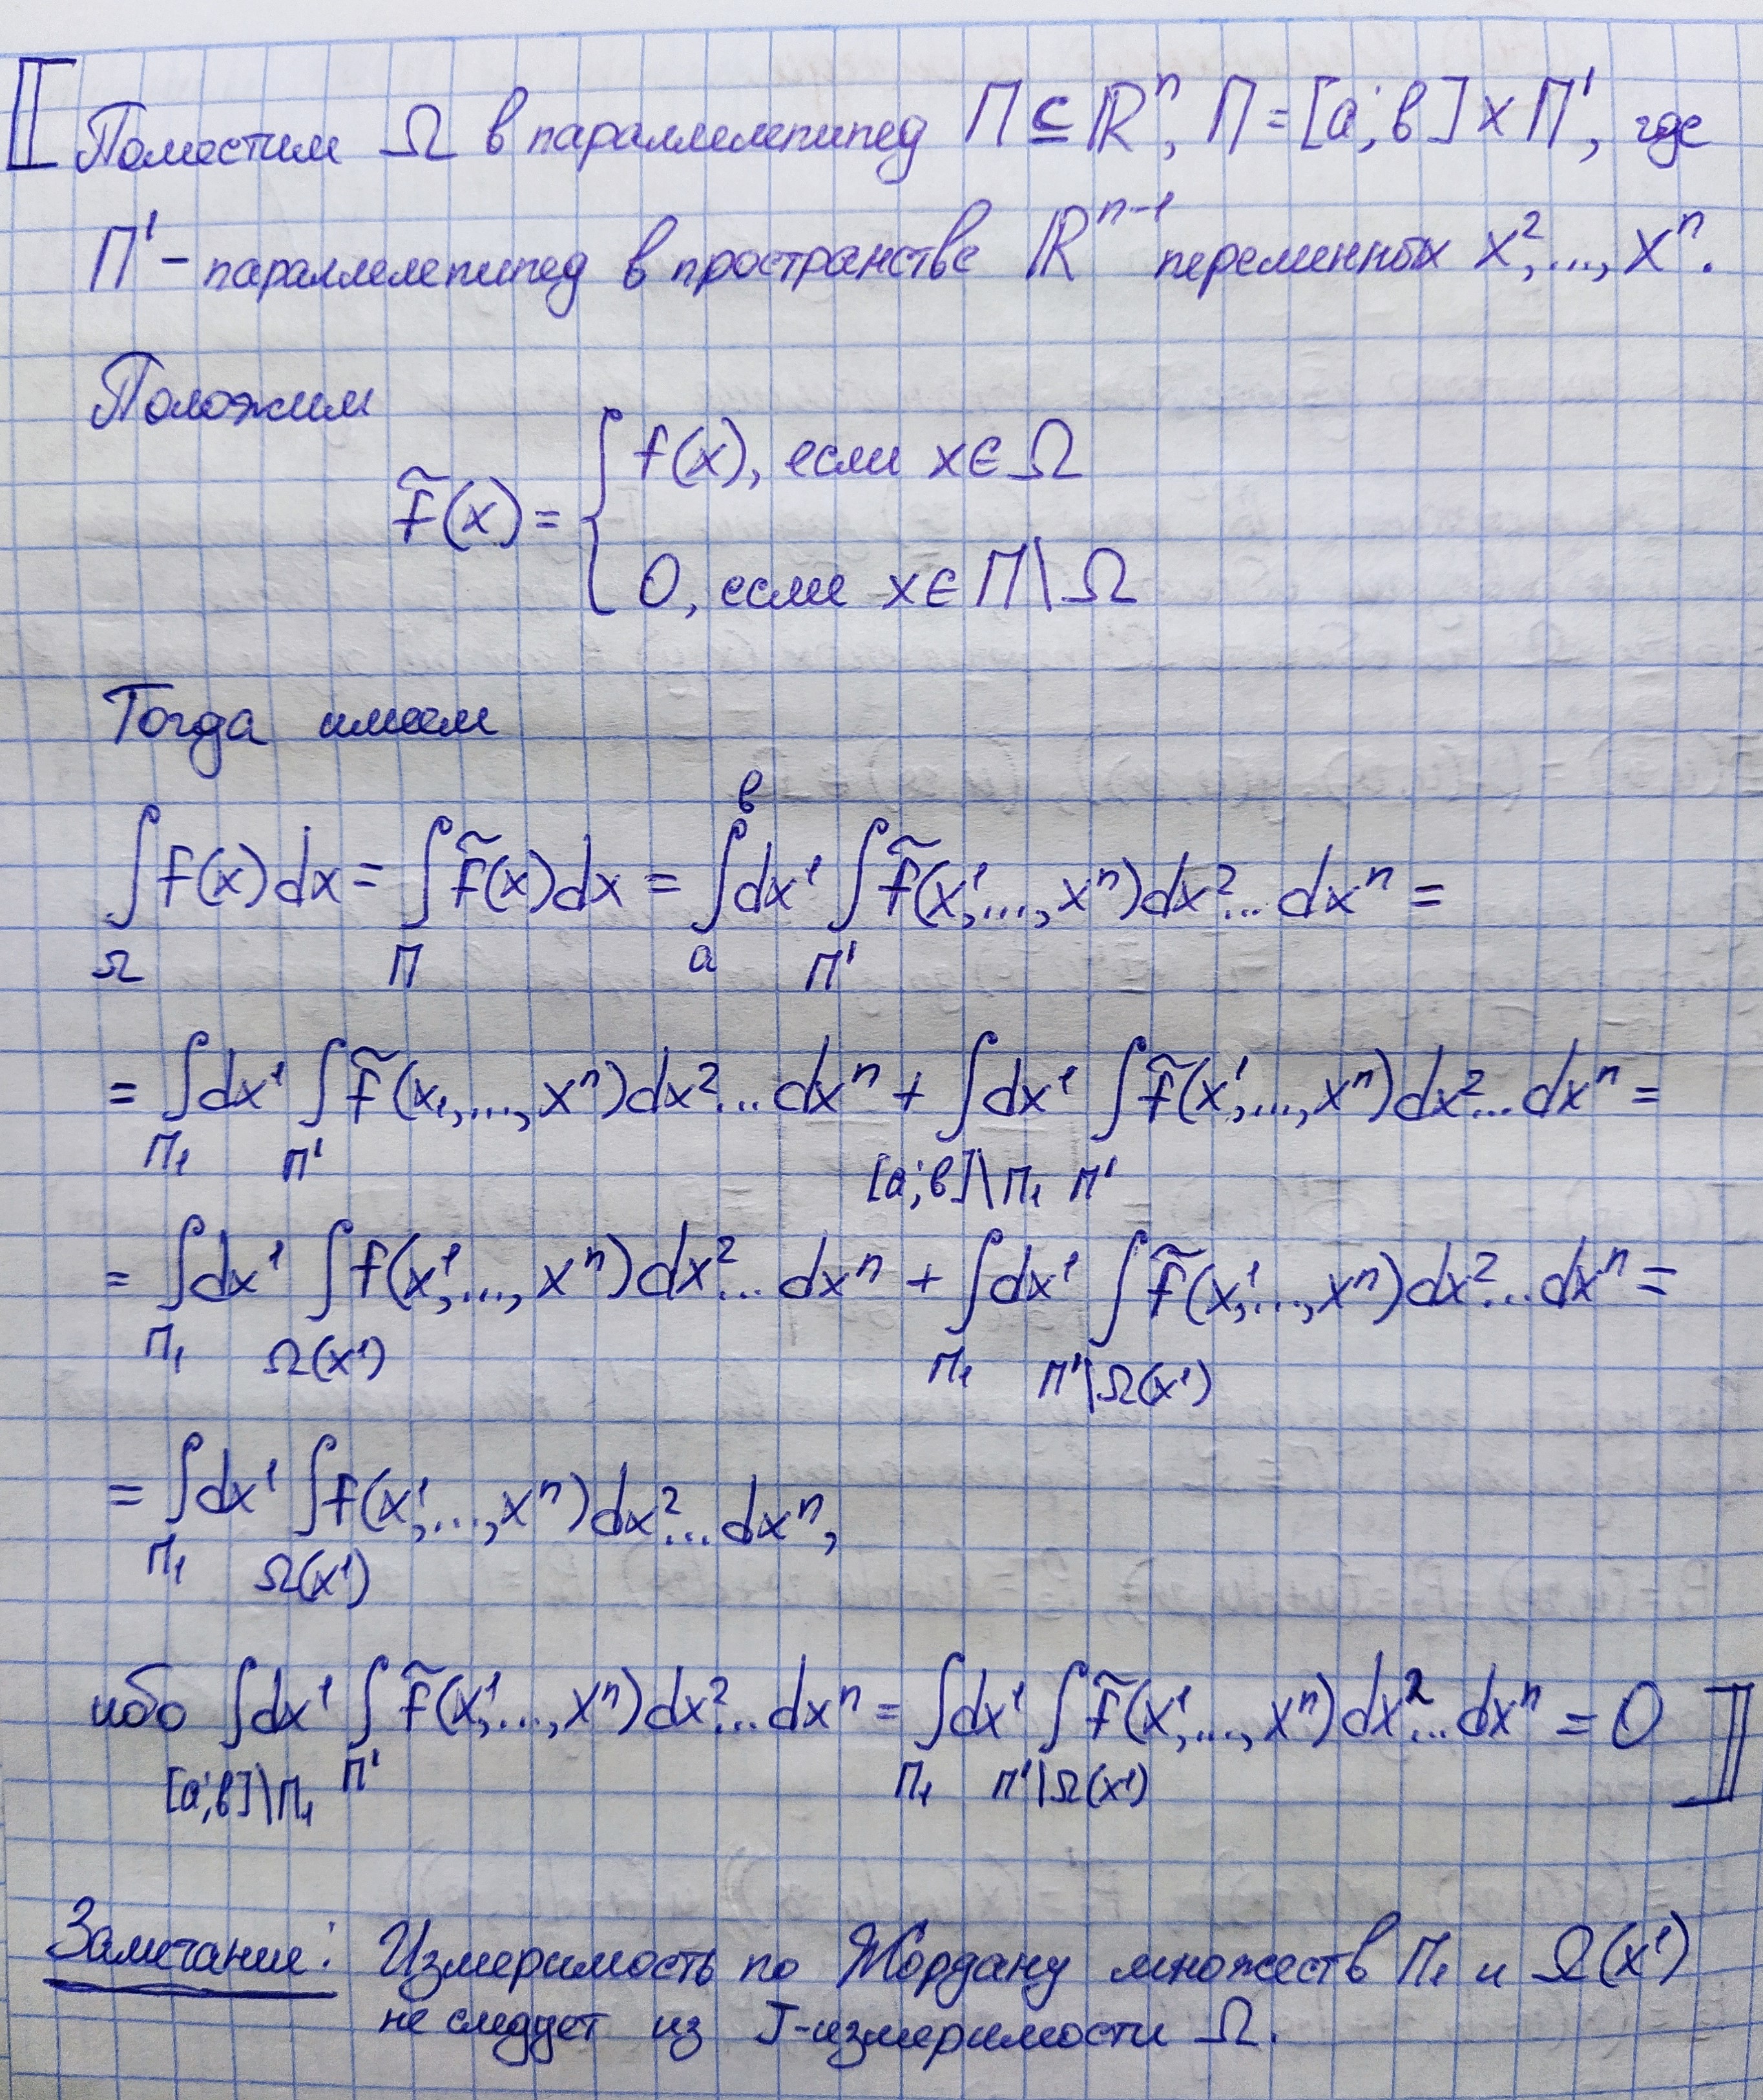 ⟦ Поместим Ω в параллелепипед П ⊆ ℝⁿ, П = [a; b] × П', где
П' – параллелепипед в пространстве ℝⁿ⁻¹ переменных x², ..., xⁿ.
Положим
f̃(x) = { f(x), если x ∈ Ω
0, если x ∈ П \ Ω
Тогда имеем
∫_Ω f(x)dx = ∫_П f̃(x)dx = ∫_a^b dx¹ ∫_П' f̃(x¹, ..., xⁿ)dx²... dxⁿ =
= ∫_П₁ dx¹ ∫_П' f̃(x₁, ..., xⁿ)dx²... dxⁿ + ∫_[a;b]\П₁ dx¹ ∫_П' f̃(x¹, ..., xⁿ)dx²... dxⁿ =
= ∫_П₁ dx¹ ∫_Ω(x¹) f(x¹, ..., xⁿ)dx²... dxⁿ + ∫_П₁ dx¹ ∫_П'\Ω(x¹) f̃(x¹, ..., xⁿ)dx²... dxⁿ =
= ∫_П₁ dx¹ ∫_Ω(x¹) f(x¹, ..., xⁿ)dx²... dxⁿ,
ибо ∫_[a;b]\П₁ dx¹ ∫_П' f̃(x¹, ..., xⁿ)dx²... dxⁿ = ∫_П₁ dx¹ ∫_П'\Ω(x¹) f̃(x¹, ..., xⁿ)dx²... dxⁿ = 0 ⟧
Замечание: Измеримость по Жордану множеств П₁ и Ω(x¹)
не следует из J-измеримости Ω.